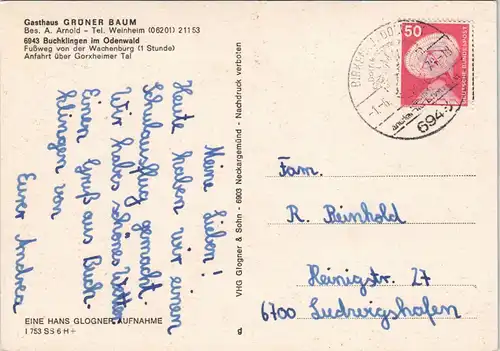 Gasthaus GRÜNER BAUM
Bes. A. Arnold - Tel. Weinheim (06201) 21153
6943 Buchklingen im Odenwald
Fußweg von der Wachenburg (1 Stunde)
Anfahrt über Gorxheimer Tal
Meine Lieben!
Heute haben wir einen
Schulausflug gemacht.
Wir haben schönes Wetter.
Einen Gruß aus Buch-
klingen von
Eurer Andrea
EINE HANS GLOGNER AUFNAHME
VHG Glogner & Sohn - 6903 Neckargemünd - Nachdruck verboten
g
50
DEUTSCHE BUNDESPOST
Fam.
R. Reinhold
Heinigstr. 27
6700 Ludwigshafen